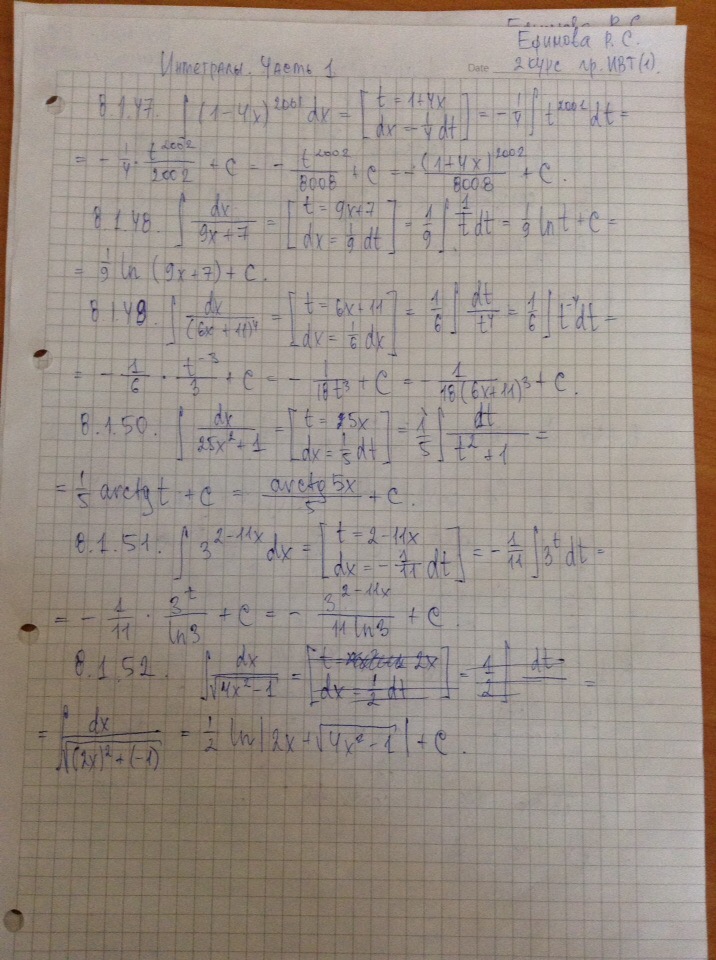 Ефимова Р. С.
Ефимова Р. С.
Интегралы. Часть 1
Date 2 курс гр. ИВТ(1).
8.1.47. ∫ (1-4x)^2001 dx = [t = 1+4x; dx = -1/4 dt] = -1/4 ∫ t^2001 dt =
= -1/4 · t^2002/2002 + C = - t^2002/8008 + C = - (1+4x)^2002/8008 + C.
8.1.48. ∫ dx/(9x+7) = [t = 9x+7; dx = 1/9 dt] = 1/9 ∫ 1/t dt = 1/9 ln t + C =
= 1/9 ln (9x+7) + C.
8.1.49. ∫ dx/(6x+11)^4 = [t = 6x+11; dx = 1/6 dx] = 1/6 ∫ dt/t^4 = 1/6 ∫ t^-4 dt =
= - 1/6 · t^-3/3 + C = - 1/18t^3 + C = - 1/18(6x+11)^3 + C.
8.1.50. ∫ dx/(25x^2+1) = [t = 25x; dx = 1/5 dt] = 1/5 ∫ dt/(t^2+1) =
= 1/5 arctg t + C = arctg 5x/5 + C.
8.1.51. ∫ 3^(2-11x) dx = [t = 2-11x; dx = -1/11 dt] = -1/11 ∫ 3^t dt =
= - 1/11 · 3^t/ln3 + C = - 3^(2-11x)/11 ln3 + C.
8.1.52. ∫ dx/√(4x^2-1) = [t 2x; dx = 1/2 dt] = 1/2 ∫ dt =
= ∫ dx/√((2x)^2+(-1)) = 1/2 ln |2x+√(4x^2-1)| + C.